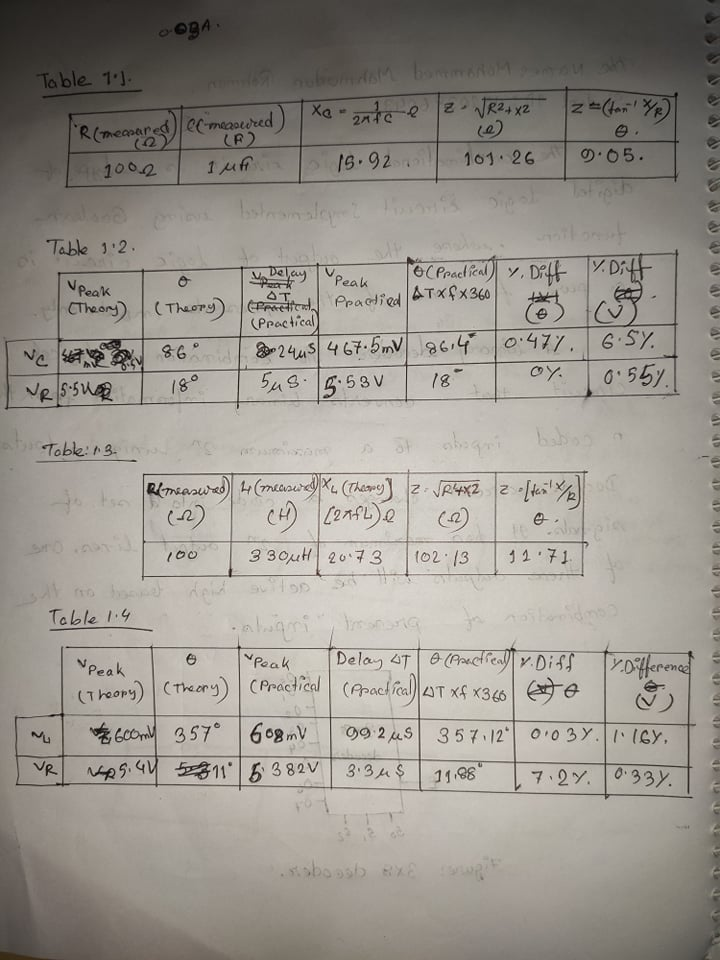 Table 1.1.
R(measured) (Ω) C(measured) (F) Xc = 1/2πfC Ω Z = √R2+X2 (Ω) Z = (tan-1 X/R) θ.
100Ω 1 μF 15.92. 101.26 9.05.
Table 1.2.
VPeak (Theory) θ (Theory) Delay ΔT (Practical) VPeak Practical θ (Practical) ΔT x f x 360 %. Diff (θ) %. Diff (V)
VC 86° 24μS 467.5mV 86.4° 0.47%. 6.5%.
VR 5.5V 18° 5μS. 5.53V 18° 0%. 0.55%.
Table: 1.3.
R(measured) (Ω) L(measured) (H) XL (Theory) (2πfL) Ω Z = √R2+X2 (Ω) Z = [tan-1 X/R] θ.
100 330μH 20.73 102.13 11.71
Table 1.4
VPeak (Theory) θ (Theory) VPeak (Practical Delay ΔT (Practical) θ (Practical) ΔT x f x 360 %. Diff θ %. Difference (V)
VL 600mV 357° 608mV 99.2μS 357.12° 0.03%. 1.16%.
VR 5.4V 11° 5.382V 3.3μS 11.88° 7.2%. 0.33%.